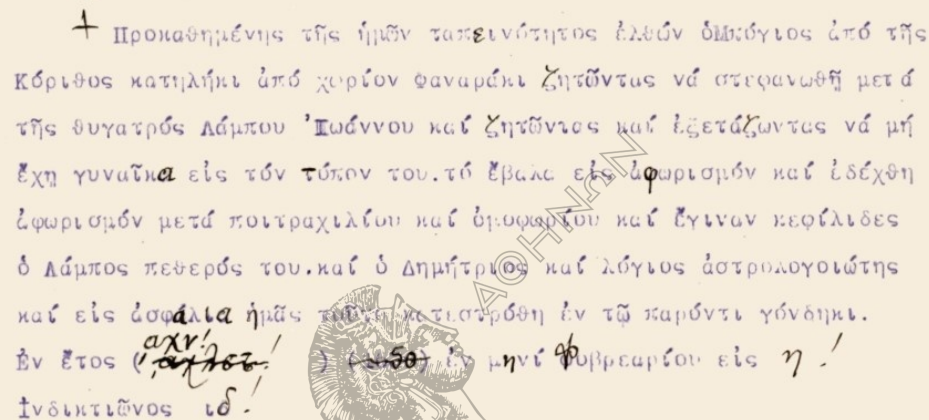 + Προκαθημένης τῆς ἡμῶν ταπεινότητος ἐλθών ὁΜπόγιος ἀπό τῆς
Κόριθος κατηλήκι ἀπό χωρίον Φαναράκι ζητῶντας νά στεφανωθῇ μετά
τῆς θυγατρός Λάμπου Ἰωάννου καί ζητῶντας καί ἐξετάζωντας νά μή
ἔχη γυναῖκα εἰς τόν τόπον του.τό ἔβαλα εἰς ἀφωρισμόν καί ἐδέχθη
ἀφωρισμόν μετά ποιτραχιλίου καί ὁμοφωρίου καί ἔγιναν κεφίλιδες
ὁ Λάμπος πεθερός του.καί ὁ Δημήτριος καί λόγιος ἀστρολογοιώτης
καί εἰς ἀσφάλια ἡμᾶς τοῦτο κατεστρόθη ἐν τῷ παρόντι γόνδηκι.
αχν!
Ἐν ἔτος ( ) ἐν μηνί Φουβρεαρίου εἰς η!
Ἰνδικτιῶνος ιδ!
ΑΘΗΝΩΝ